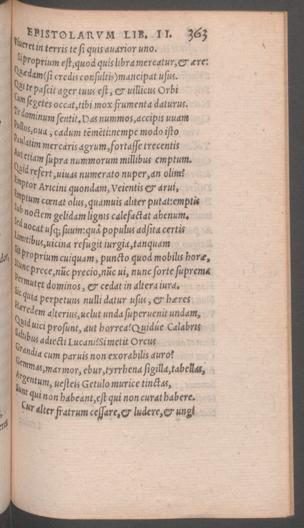 EPISTOLARVM LIB. II. 363
Viueret in terris te si quis auarior uno.
Si proprium est, quod quis libra mercatur, & ære:
Quædam (si credis consultis) mancipat usus.
Qui te pascit ager tuus est, & uillicus Orbi
Cum segetes occat, tibi mox frumenta daturus,
Te dominum sentit. Das nummos, accipis uuam
Pullos, oua, cadum temēti: nempe modo isto
Paulatim mercaris agrum, fortasse trecentis
Aut etiam supra nummorum millibus emptum.
Quid refert, uiuas numerato nuper, an olim?
Emptor Aricini quondam, Veientis & arui,
Emptum cœnat olus, quamuis aliter putat: emptis
Sub noctem gelidam lignis calefactat ahenum.
Sed uocat usq; suum: quà populus adsita certis
Limitibus, uicina refugit iurgia, tanquam
Sit proprium cuiquam, puncto quod mobilis horæ,
Nunc prece, nūc precio, nūc ui, nunc sorte suprema
Permutet dominos, & cedat in altera iura.
Sic quia perpetuus nulli datur usus, & hæres
Hæredem alterius, uelut unda superuenit undam,
Quid uici prosunt, aut horrea? Quidúe Calabris
Saltibus adiecti Lucani? Si metit Orcus
Grandia cum paruis non exorabilis auro?
Gemmas, marmor, ebur, tyrrhena sigilla, tabellas,
Argentum, uesteis Getulo murice tinctas,
Sunt qui non habeant, est qui non curat habere.
Cur alter fratrum cessare, & ludere, & ungi